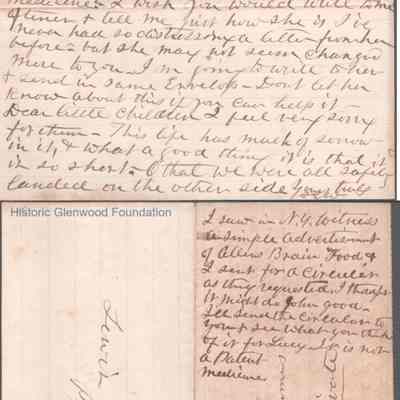 medicine. I wish you would write to me
oftener & tell me just how she is I've
never had so distressing a letter from her
before - but she may not seem changed
more to you - I'm going to write to her
& send in same Envelop - Dont let her
know about this if you can help it -
Dear little Children I feel very sorry
for them - This life has much of sorrow
in it, & what a good thing it is that it
is so short - O that we were all safely
landed on the other side
Historic Glenwood Foundation
I saw in N.Y. Witness
a Simple Advertisment
of Allens Brain Food &
I sent for a Circular
as they requested. I thought
it might do John good -
I'll send the Circular to
you & see what you think
of it for Lucy - It is not
a Patent
medicine
Lewis